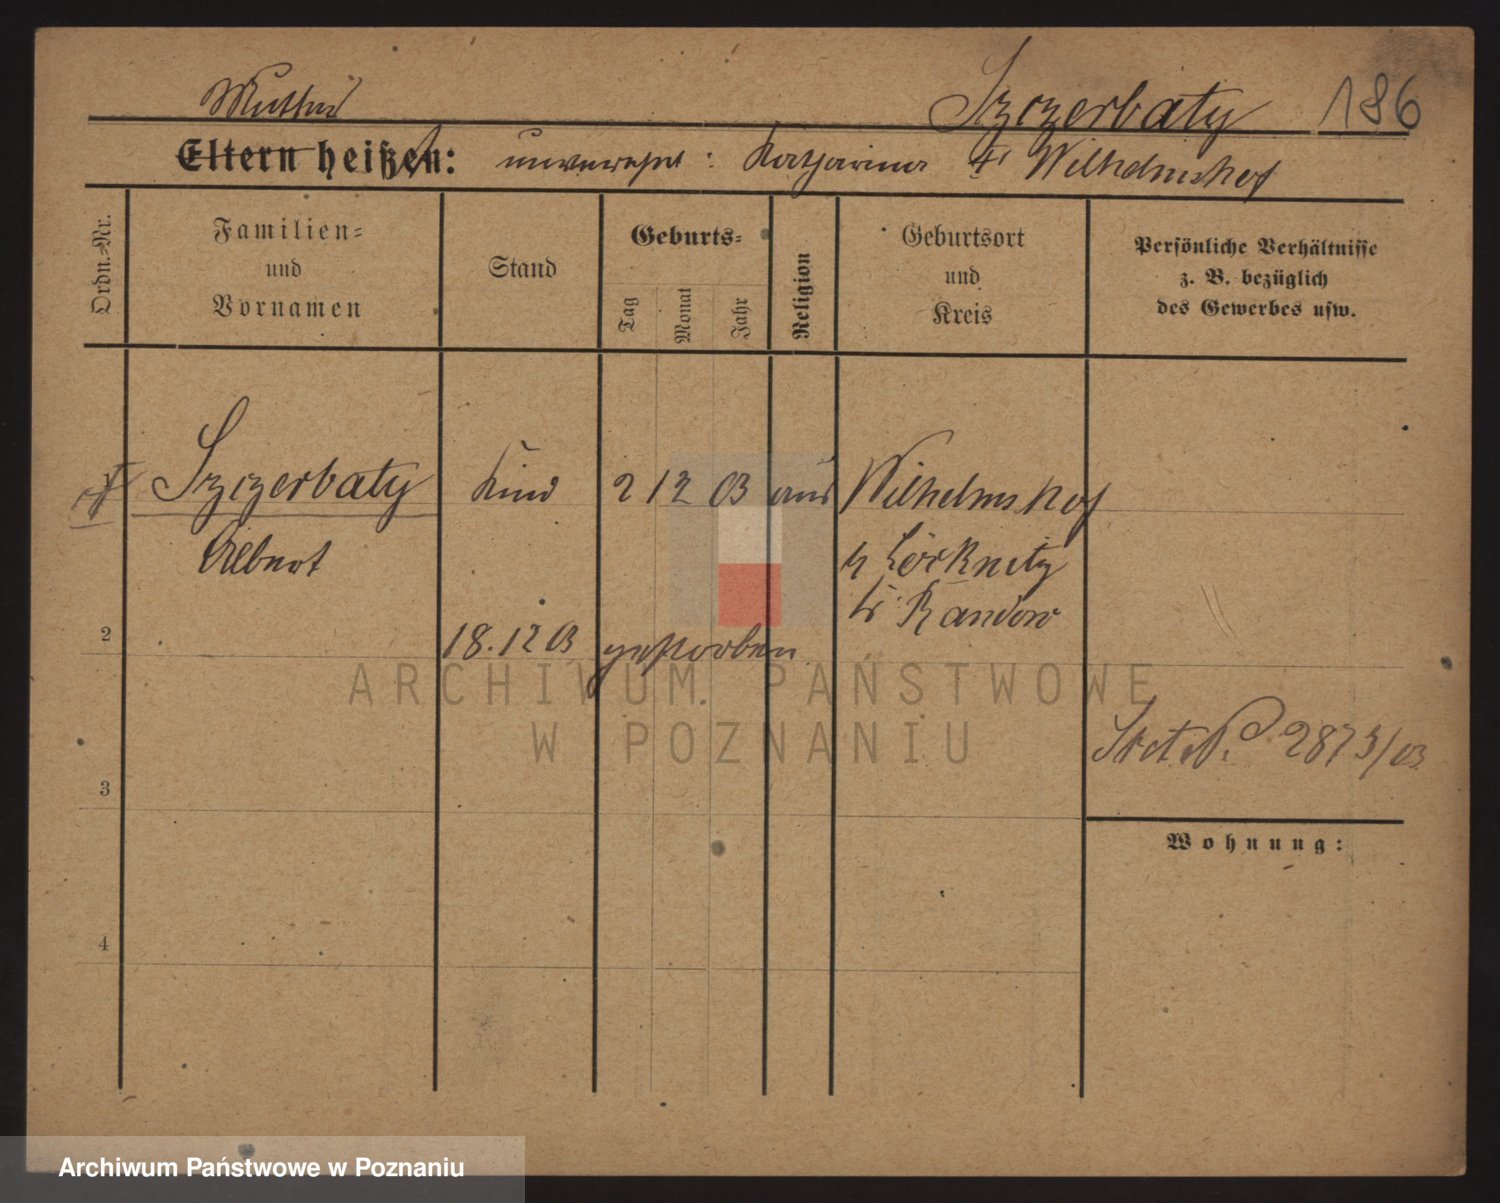 Mutter
Szczerbaty 186
Eltern heißen: unverehel: Katharina Wilhelmshof
Ordn.-Nr.
Familien=
und
Vornamen
Stand
Geburts=
Tag
Monat
Jahr
Religion
Geburtsort
und
Kreis
Persönliche Verhältnisse
z. B. bezüglich
des Gewerbes usw.
1 Szczerbaty Kind 2 12 03 aus Wilhelmshof
Albert
Löcknitz
Kr Randow
2
18.12 03 gestorben
ARCHIWUM PAŃSTWOWE
W POZNANIU
2873/03
3
Wohnung:
4
Archiwum Państwowe w Poznaniu